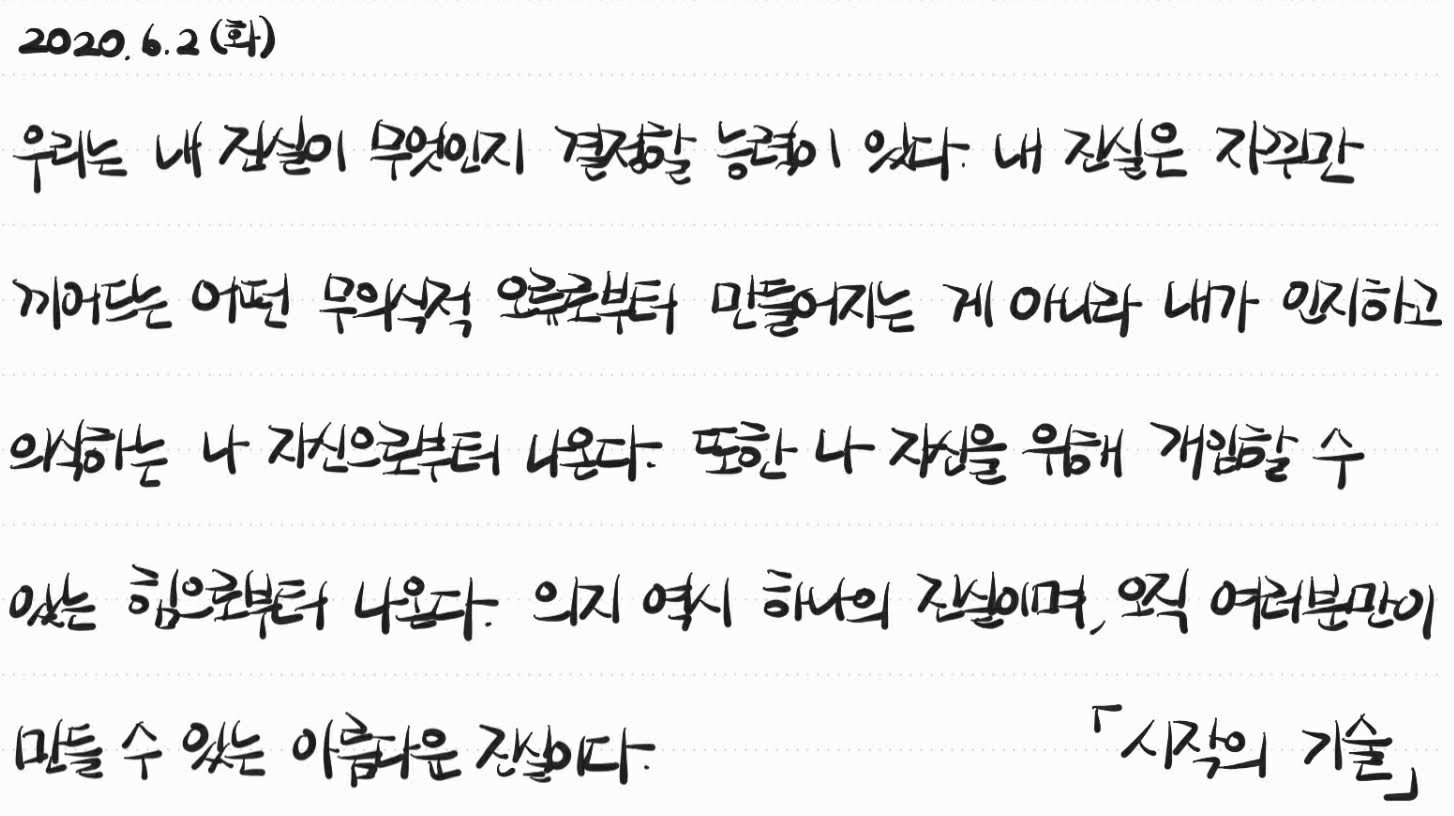 2020. 6. 2 (화)
우리는 내 진실이 무엇인지 결정할 능력이 있다. 내 진실은 자꾸만
끼어드는 어떤 무의식적 오류로부터 만들어지는 게 아니라 내가 인지하고
의식하는 나 자신으로부터 나온다. 또한 나 자신을 위해 개입할 수
있는 힘으로부터 나온다. 의지 역시 하나의 진실이며, 오직 여러분만이
만들 수 있는 아름다운 진실이다. 「시작의 기술」